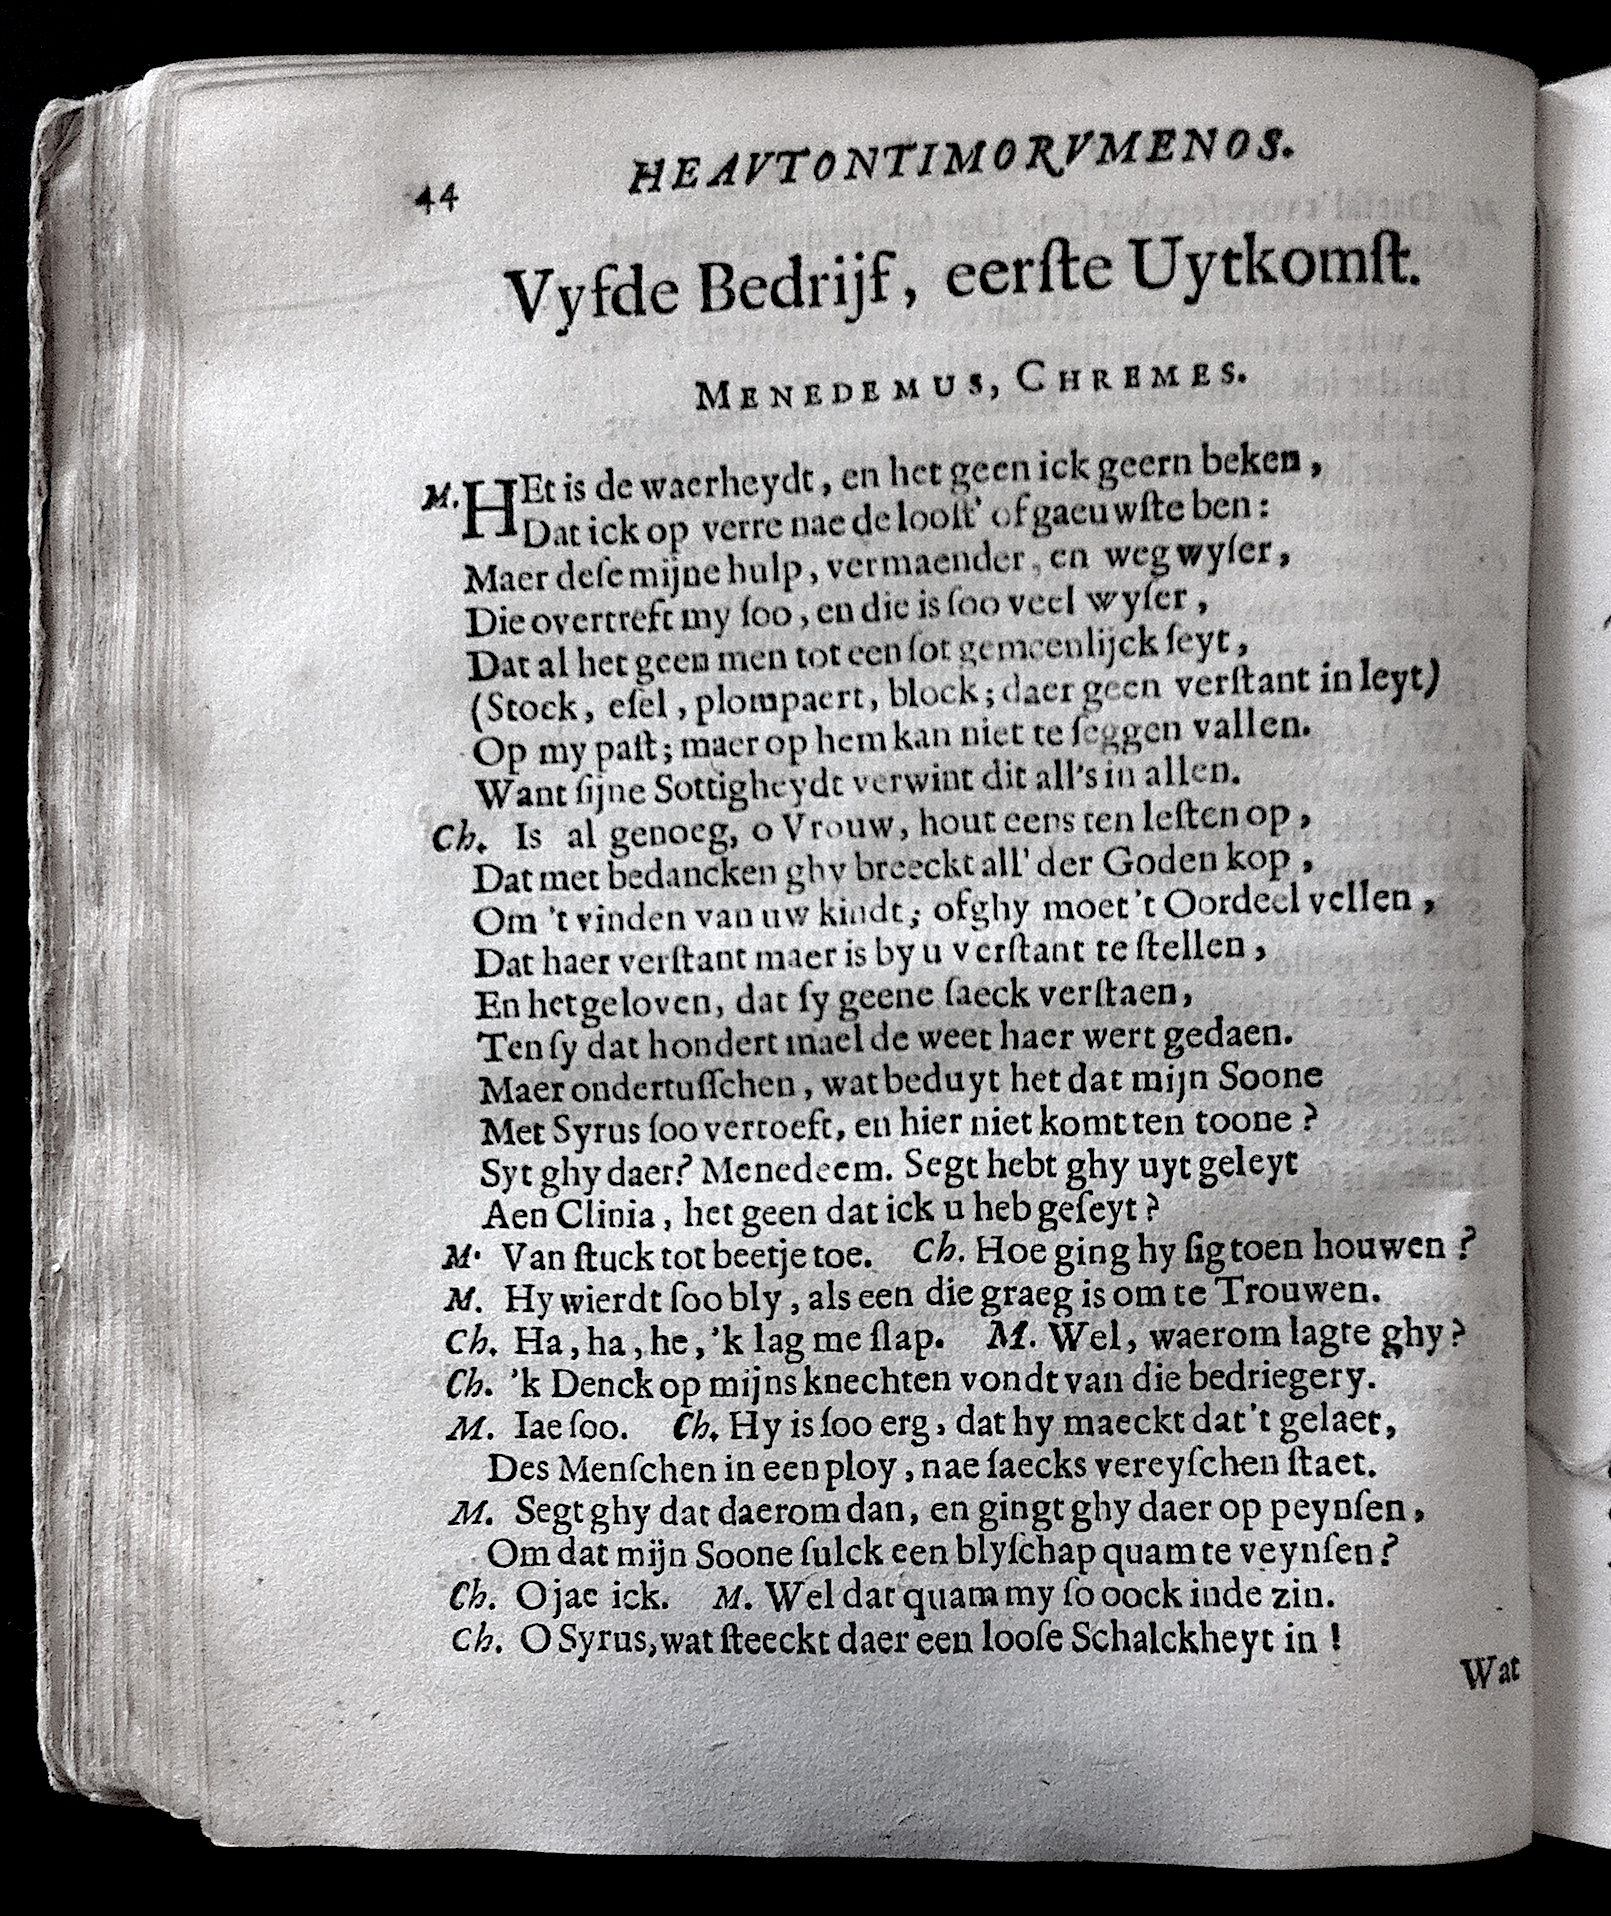 44 HEAVTONTIMORVMENOS.
Vyfde Bedrijf, eerſte Uytkomſt.
MENEDEMUS, CHREMES.
M. HEt is de waerheydt, en het geen ick geern beken,
Dat ick op verre nae de looſt' of gaeuwſte ben:
Maer deſe mijne hulp, vermaender, en wegwyſer,
Die overtreft my ſoo, en die is ſoo veel wyſer,
Dat al het geen men tot een ſot gemeenlijck ſeyt,
(Stock, eſel, plompaert, block; daer geen verſtant in leyt)
Op my paſt; maer op hem kan niet te ſeggen vallen.
Want ſijne Sottigheydt verwint dit all's in allen.
Ch. Is al genoeg, o Vrouw, hout eens ten leſten op,
Dat met bedancken ghy breeckt all' der Goden kop,
Om 't vinden van uw kindt; of ghy moet 't Oordeel vellen,
Dat haer verſtant maer is by u verſtant te ſtellen,
En het geloven, dat ſy geene ſaeck verſtaen,
Ten ſy dat hondert mael de weet haer wert gedaen.
Maer ondertuſſchen, wat beduyt het dat mijn Soone
Met Syrus ſoo vertoeft, en hier niet komt ten toone?
Syt ghy daer? Menedeem. Segt hebt ghy uyt geleyt
Aen Clinia, het geen dat ick u heb geſeyt?
M. Van ſtuck tot beetje toe. Ch. Hoe ging hy ſig toen houwen?
M. Hy wierdt ſoo bly, als een die graeg is om te Trouwen.
Ch. Ha, ha, he, 'k lag me ſlap. M. Wel, waerom lagte ghy?
Ch. 'k Denck op mijns knechten vondt van die bedriegery.
M. Iae ſoo. Ch. Hy is ſoo erg, dat hy maeckt dat 't gelaet,
Des Menſchen in een ploy, nae ſaecks vereyſchen ſtaet.
M. Segt ghy dat daerom dan, en gingt ghy daer op peynſen,
Om dat mijn Soone ſulck een blyſchap quam te veynſen?
Ch. O jae ick. M. Wel dat quam my ſo oock inde zin.
Ch. O Syrus, wat ſteeckt daer een looſe Schalckheyt in!
Wat